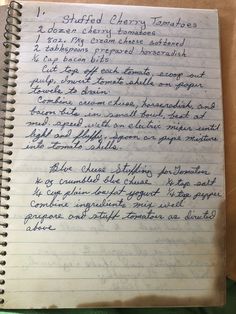 1.
Stuffed Cherry Tomatoes
2 dozen cherry tomatoes
1 8oz. Pkg cream cheese softened
2 tablespoons prepared horseradish
¼ cup bacon bits
Cut top off each tomato, scoop out
pulp, invert tomato shells on paper
towels to drain.
Combine cream cheese, horseradish, and
bacon bits in small bowl, beat at
med. speed with an electric mixer until
light and fluffy. spoon or pipe mixture
into tomato shells.
Blue Cheese Stuffing for Tomatoes
4 oz crumbled blue cheese ¼ tsp salt
¼ cup plain lowfat yogurt ¼ tsp pepper
Combine ingredients mix well
prepare and stuff tomatoes as directed
above.